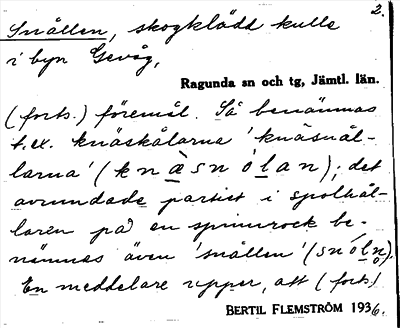 2.
Snållen, skogklädd kulle
i byn Gevåg,
Ragunda sn och tg, Jämtl. län.
(forts.) föremål. Så benämnas
t.ex. knäskålarna 'knäsnål-
larna' (knæsnólan); det
avrundade partiet i spolhål-
laren på en spinnrock be-
nämnes även 'snållen' (snóln̥).
En meddelare uppger, att (forts.)
BERTIL FLEMSTRÖM 1936.